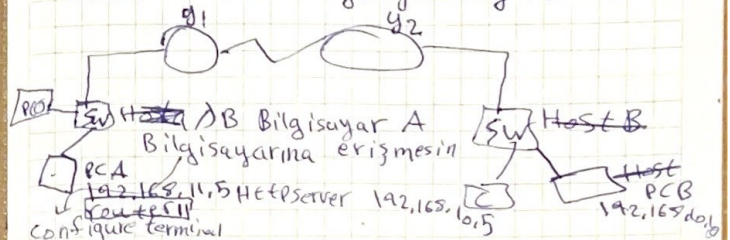 y1
y2
PC0
SW
B Bilgisayar A
Bilgisayarına erişmesin
SW
Host B
PCA
192.168.11.5 Http server
192.168.10.5
C
Host
PCB
configure terminal